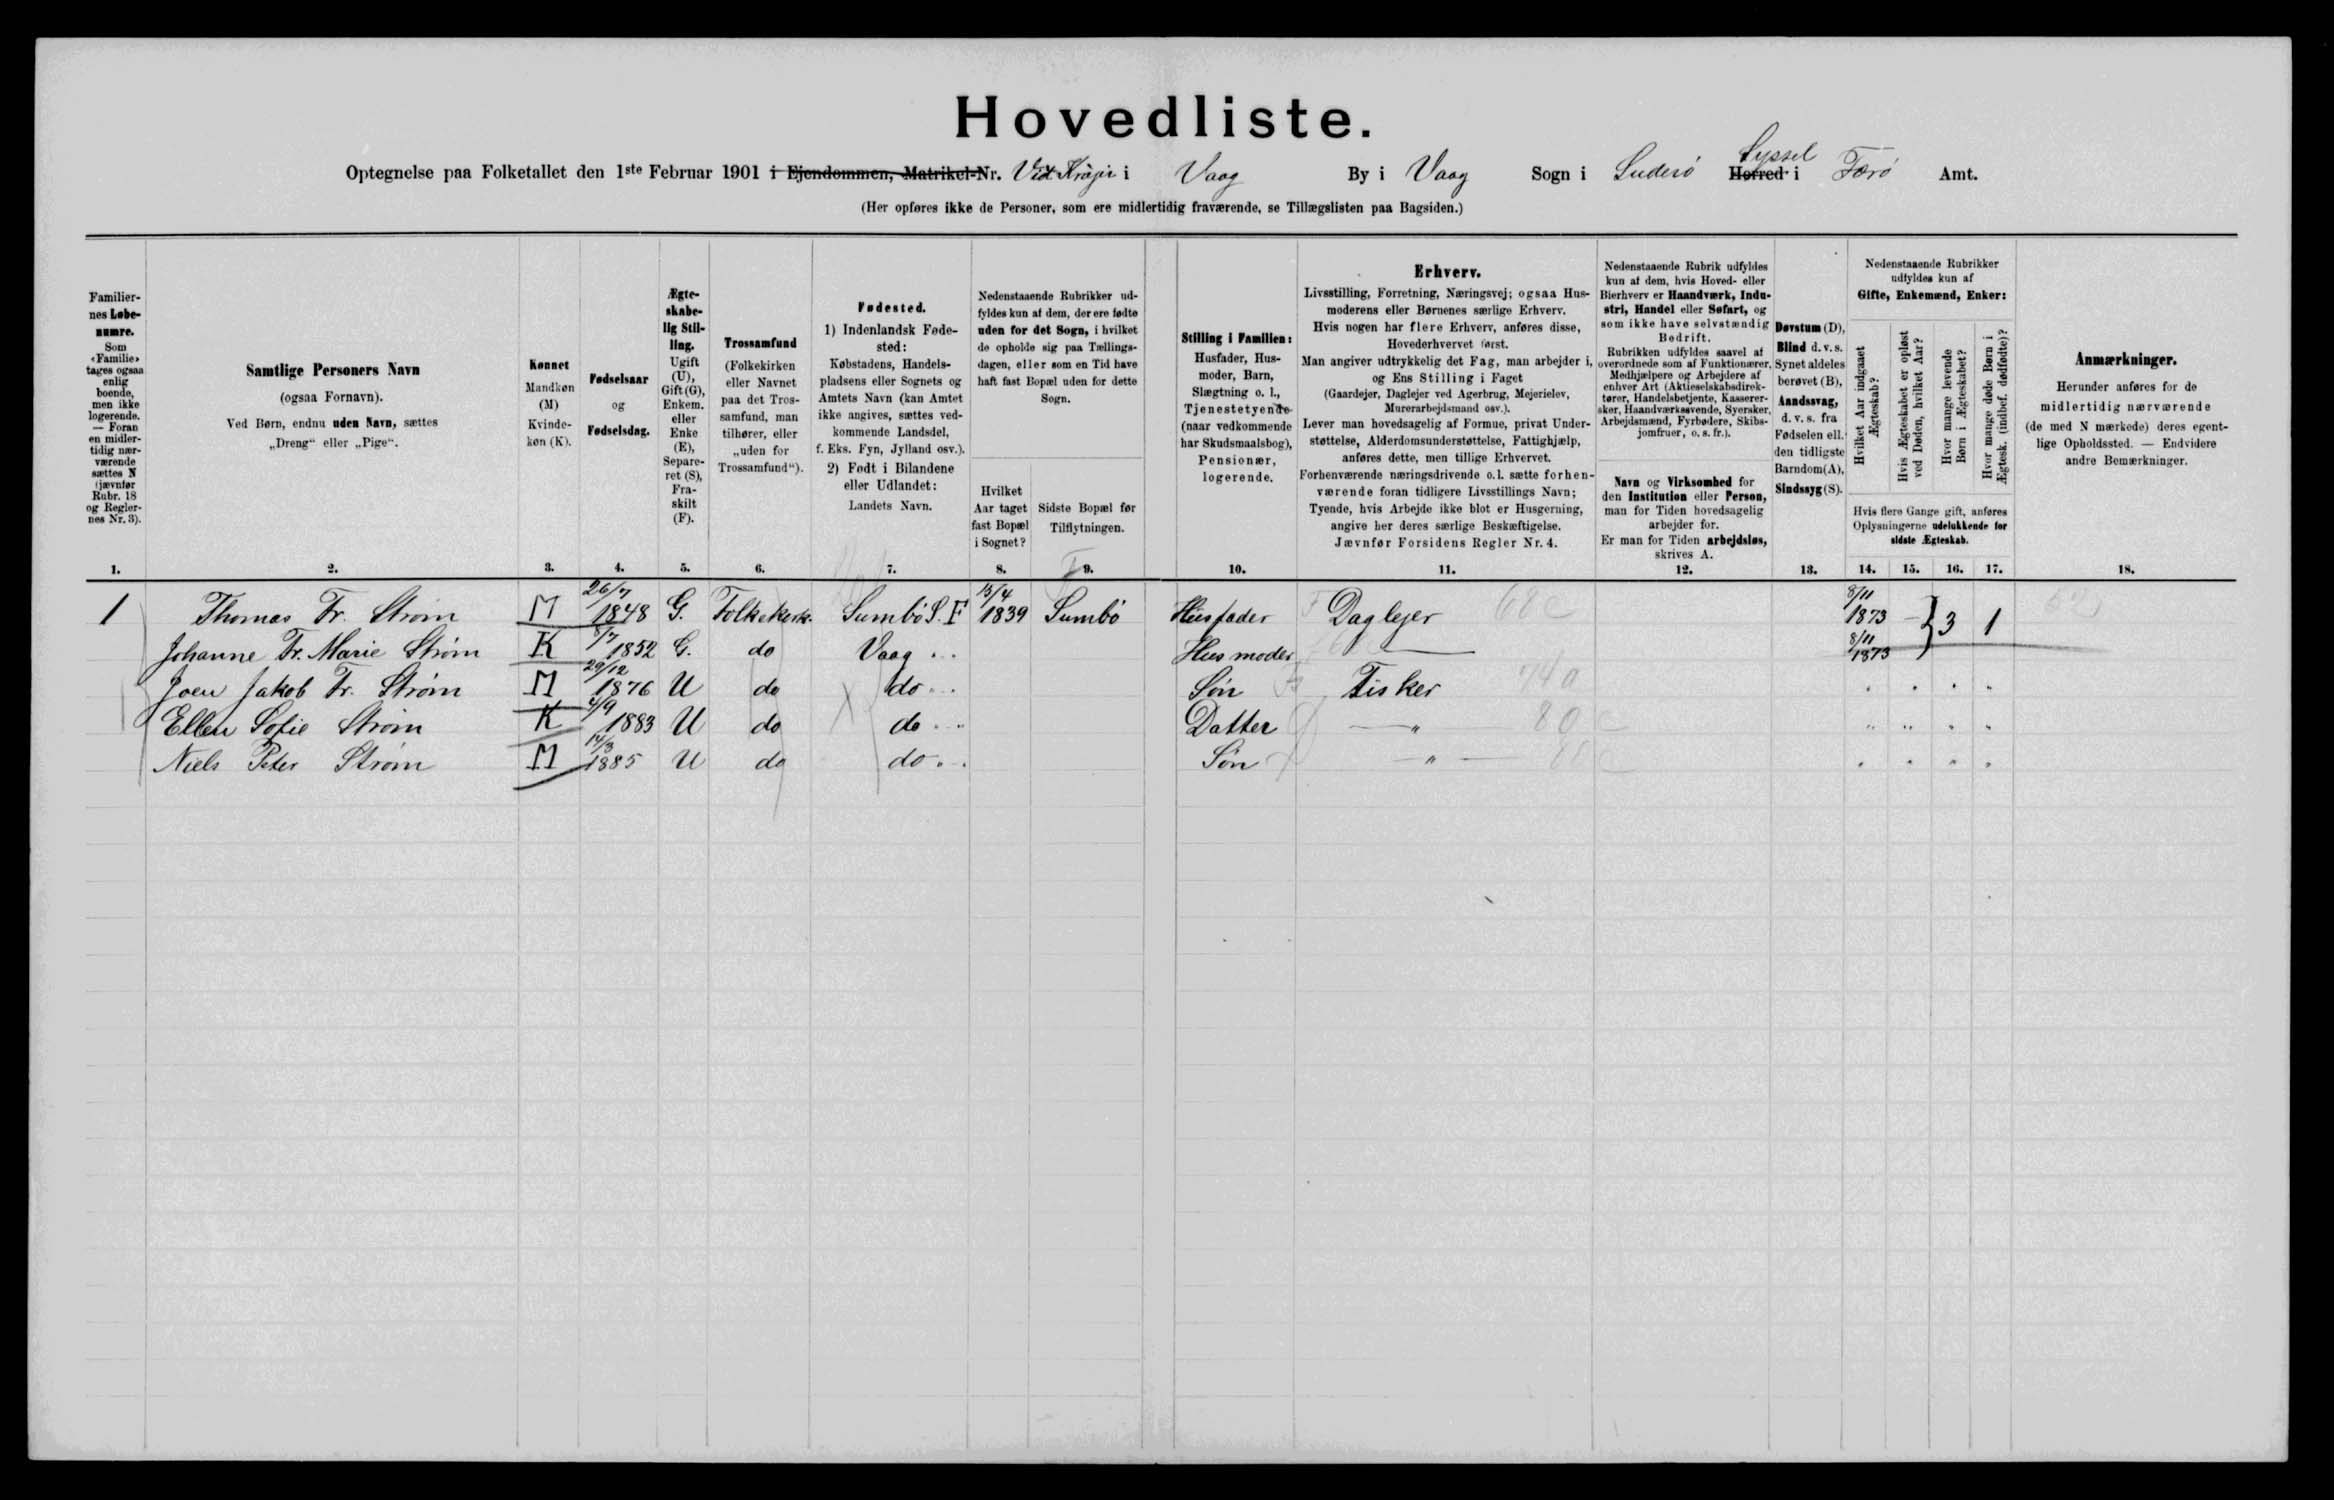 Hovedliste.
Optegnelse paa Folketallet den 1ste Februar 1901 i Ejendommen, Matrikel-Nr. Vid Kråjir i Vaag By i Vaag Sogn i Suderö Syssel Herred i Færö Amt.
(Her opføres ikke de Personer, som ere midlertidig fraværende, se Tillægslisten paa Bagsiden.)
Familiernes Løbenumre.
Som «Familie» tages ogsaa enlig boende, men ikke logerende. — Foran en midlertidig nærværende sættes N (jævnfør Rubr. 18 og Reglernes Nr. 3).
Samtlige Personers Navn
(ogsaa Fornavn).
Ved Børn, endnu uden Navn, sættes
„Dreng“ eller „Pige“.
Kønnet
Mandkøn (M)
Kvindekøn (K).
Fødselsaar
og
Fødselsdag.
Ægteskabelig Stilling.
Ugift (U), Gift (G), Enkem. eller Enke (E), Separeret (S), Fraskilt (F).
Trossamfund
(Folkekirken eller Navnet paa det Trossamfund, man tilhører, eller „uden for Trossamfund“).
Fødested.
1) Indenlandsk Fødested:
Købstadens, Handelspladsens eller Sognets og Amtets Navn (kan Amtet ikke angives, sættes vedkommende Landsdel, f. Eks. Fyn, Jylland osv.).
2) Født i Bilandene eller Udlandet:
Landets Navn.
Nedenstaaende Rubrikker udfyldes kun af dem, der ere fødte uden for det Sogn, i hvilket de opholde sig paa Tællingsdagen, eller som en Tid have haft fast Bopæl uden for dette Sogn.
Hvilket Aar taget fast Bopæl i Sognet?
Sidste Bopæl før Tilflytningen.
Stilling i Familien:
Husfader, Husmoder, Barn, Slægtning o. l., Tjenestetyende (naar vedkommende har Skudsmaalsbog), Pensionær, logerende.
Erhverv.
Livsstilling, Forretning, Næringsvej; ogsaa Husmoderens eller Børnenes særlige Erhverv.
Hvis nogen har flere Erhverv, anføres disse, Hovederhvervet først.
Man angiver udtrykkelig det Fag, man arbejder i, og Ens Stilling i Faget
(Gaardejer, Daglejer ved Agerbrug, Mejerielev, Murerarbejdsmand osv.).
Lever man hovedsagelig af Formue, privat Understøttelse, Alderdomsunderstøttelse, Fattighjælp, anføres dette, men tillige Erhvervet.
Forhenværende næringsdrivende o.l. sætte forhenværende foran tidligere Livsstillings Navn;
Tyende, hvis Arbejde ikke blot er Husgerning, angive her deres særlige Beskæftigelse.
Jævnfør Forsidens Regler Nr. 4.
Nedenstaaende Rubrik udfyldes kun af dem, hvis Hoved- eller Bierhverv er Haandværk, Industri, Handel eller Søfart, og som ikke have selvstændig Bedrift.
Rubrikken udfyldes saavel af overordnede som af Funktionærer, Medhjælpere og Arbejdere af enhver Art (Aktieselskabsdirektører, Handelsbetjente, Kasserersker, Haandværkssvende, Syersker, Arbejdsmænd, Fyrbødere, Skibsjomfruer, o. s. fr.).
Navn og Virksomhed for den Institution eller Person, man for Tiden hovedsagelig arbejder for.
Er man for Tiden arbejdsløs, skrives A.
Døvstum (D), Blind d. v. s. Synet aldeles berøvet (B), Aandssvag, d. v. s. fra Fødselen ell. den tidligste Barndom (A), Sindssyg (S).
Nedenstaaende Rubrikker udfyldes kun af
Gifte, Enkemænd, Enker:
Hvilket Aar indgaaet Ægteskab?
Hvis Ægteskabet er opløst ved Døden, hvilket Aar?
Hvor mange levende Børn i Ægteskabet?
Hvor mange døde Børn i Ægtesk. (indbef. dødfødte)?
Hvis flere Gange gift, anføres Oplysningerne udelukkende for sidste Ægteskab.
Anmærkninger.
Herunder anføres for de midlertidig nærværende (de med N mærkede) deres egentlige Opholdssted. — Endvidere andre Bemærkninger.
1. 2. 3. 4. 5. 6. 7. 8. 9. 10. 11. 12. 13. 14. 15. 16. 17. 18.
1 Thomas Fr. Strøm M 26/7 1848 G. Folkekirk. Sumbö S. F 13/4 1839 Sumbö Husfader Daglejer 68c 8/11 1873 - } 3 1
Johanne Fr. Marie Strøm K 8/7 1852 G. do Vaag .. Husmoder — 8/11 1873
Joen Jakob Fr. Strøm M 29/12 1876 U do do .. Sön Fisker 74a " " " "
Ellen Sofie Strøm K 4/9 1883 U do do .. Datter — " — 80c " " " "
Niels Peter Strøm M 14/3 1885 U do do .. Sön — " — 68c " " " "